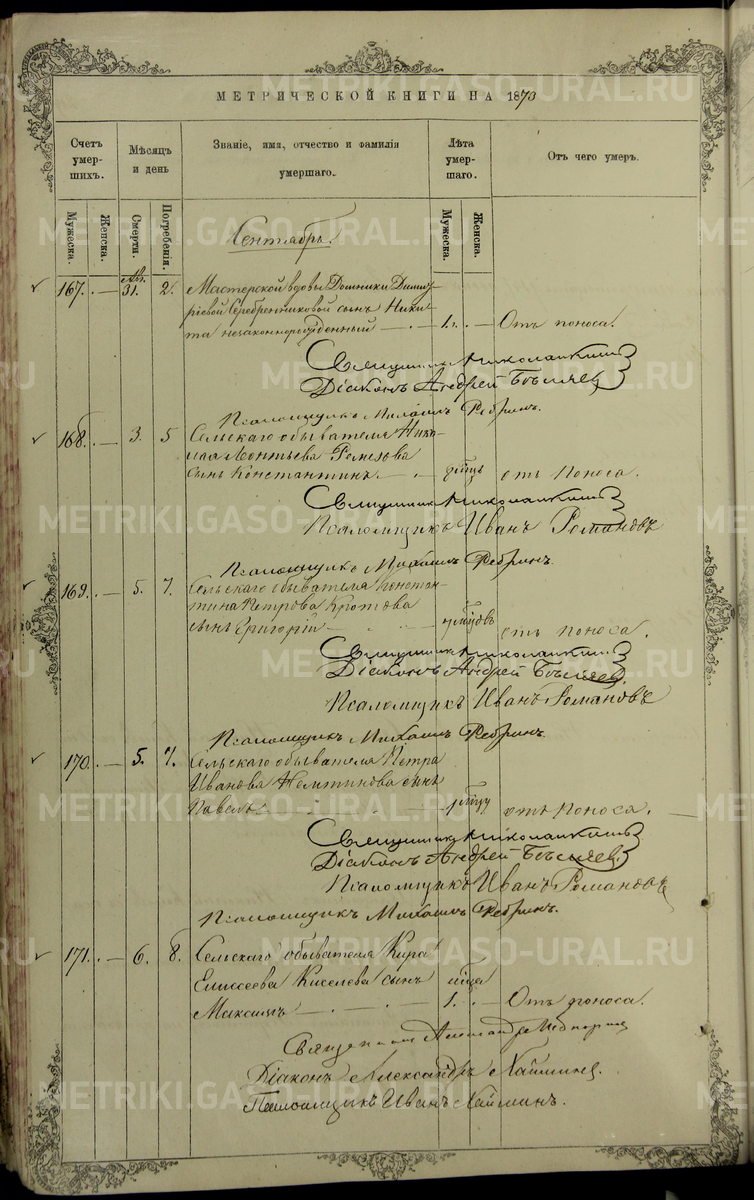 МЕТРИЧЕСКОЙ КНИГИ НА 1873
Счетъ умер-шихъ.
Мѣсяцъ и день
Званіе, имя, отчество и фамилія умершаго.
Лѣта умер-шаго.
Отъ чего умеръ.
Мужеска.
Женска.
Смерти.
Погребенія.
Мужеска.
Женска.
Сентябрь.
167. — Авг. 31. 2. Мастерской вдовы Домники Димит-
ріевой Серебренниковой сынъ Ники-
та незаконнорожденный — 1. — Отъ поноса.
Священникъ Николай
Діаконъ Андрей
Псаломщикъ Михаилъ Ребринъ.
168. — 3. 5 Сельскаго обывателя Нико-
лая Леонтьева Ремезова
сынъ Константинъ — отъ поноса.
Священникъ Николай
Псаломщикъ Иванъ Романовъ
Псаломщикъ Михаилъ Ребринъ.
169. — 5. 7. Сельскаго обывателя Констан-
тина Петрова Кротова
сынъ Григорій — отъ поноса.
Священникъ Николай
Діаконъ Андрей
Псаломщикъ Иванъ Романовъ
Псаломщикъ Михаилъ Ребринъ.
170. — 5. 7. Сельскаго обывателя Петра
Иванова сынъ
Павелъ — отъ поноса.
Священникъ Николай
Діаконъ Андрей
Псаломщикъ Иванъ Романовъ
Псаломщикъ Михаилъ Ребринъ.
171. — 6. 8. Сельскаго обывателя Кира
Елисеева Киселева сынъ
Максимъ — 1. — Отъ поноса.
Священникъ Александръ
Діаконъ Александръ Наймшинъ
Псаломщикъ Иванъ Наймшинъ.
METRIKI.GASO-URAL.RU